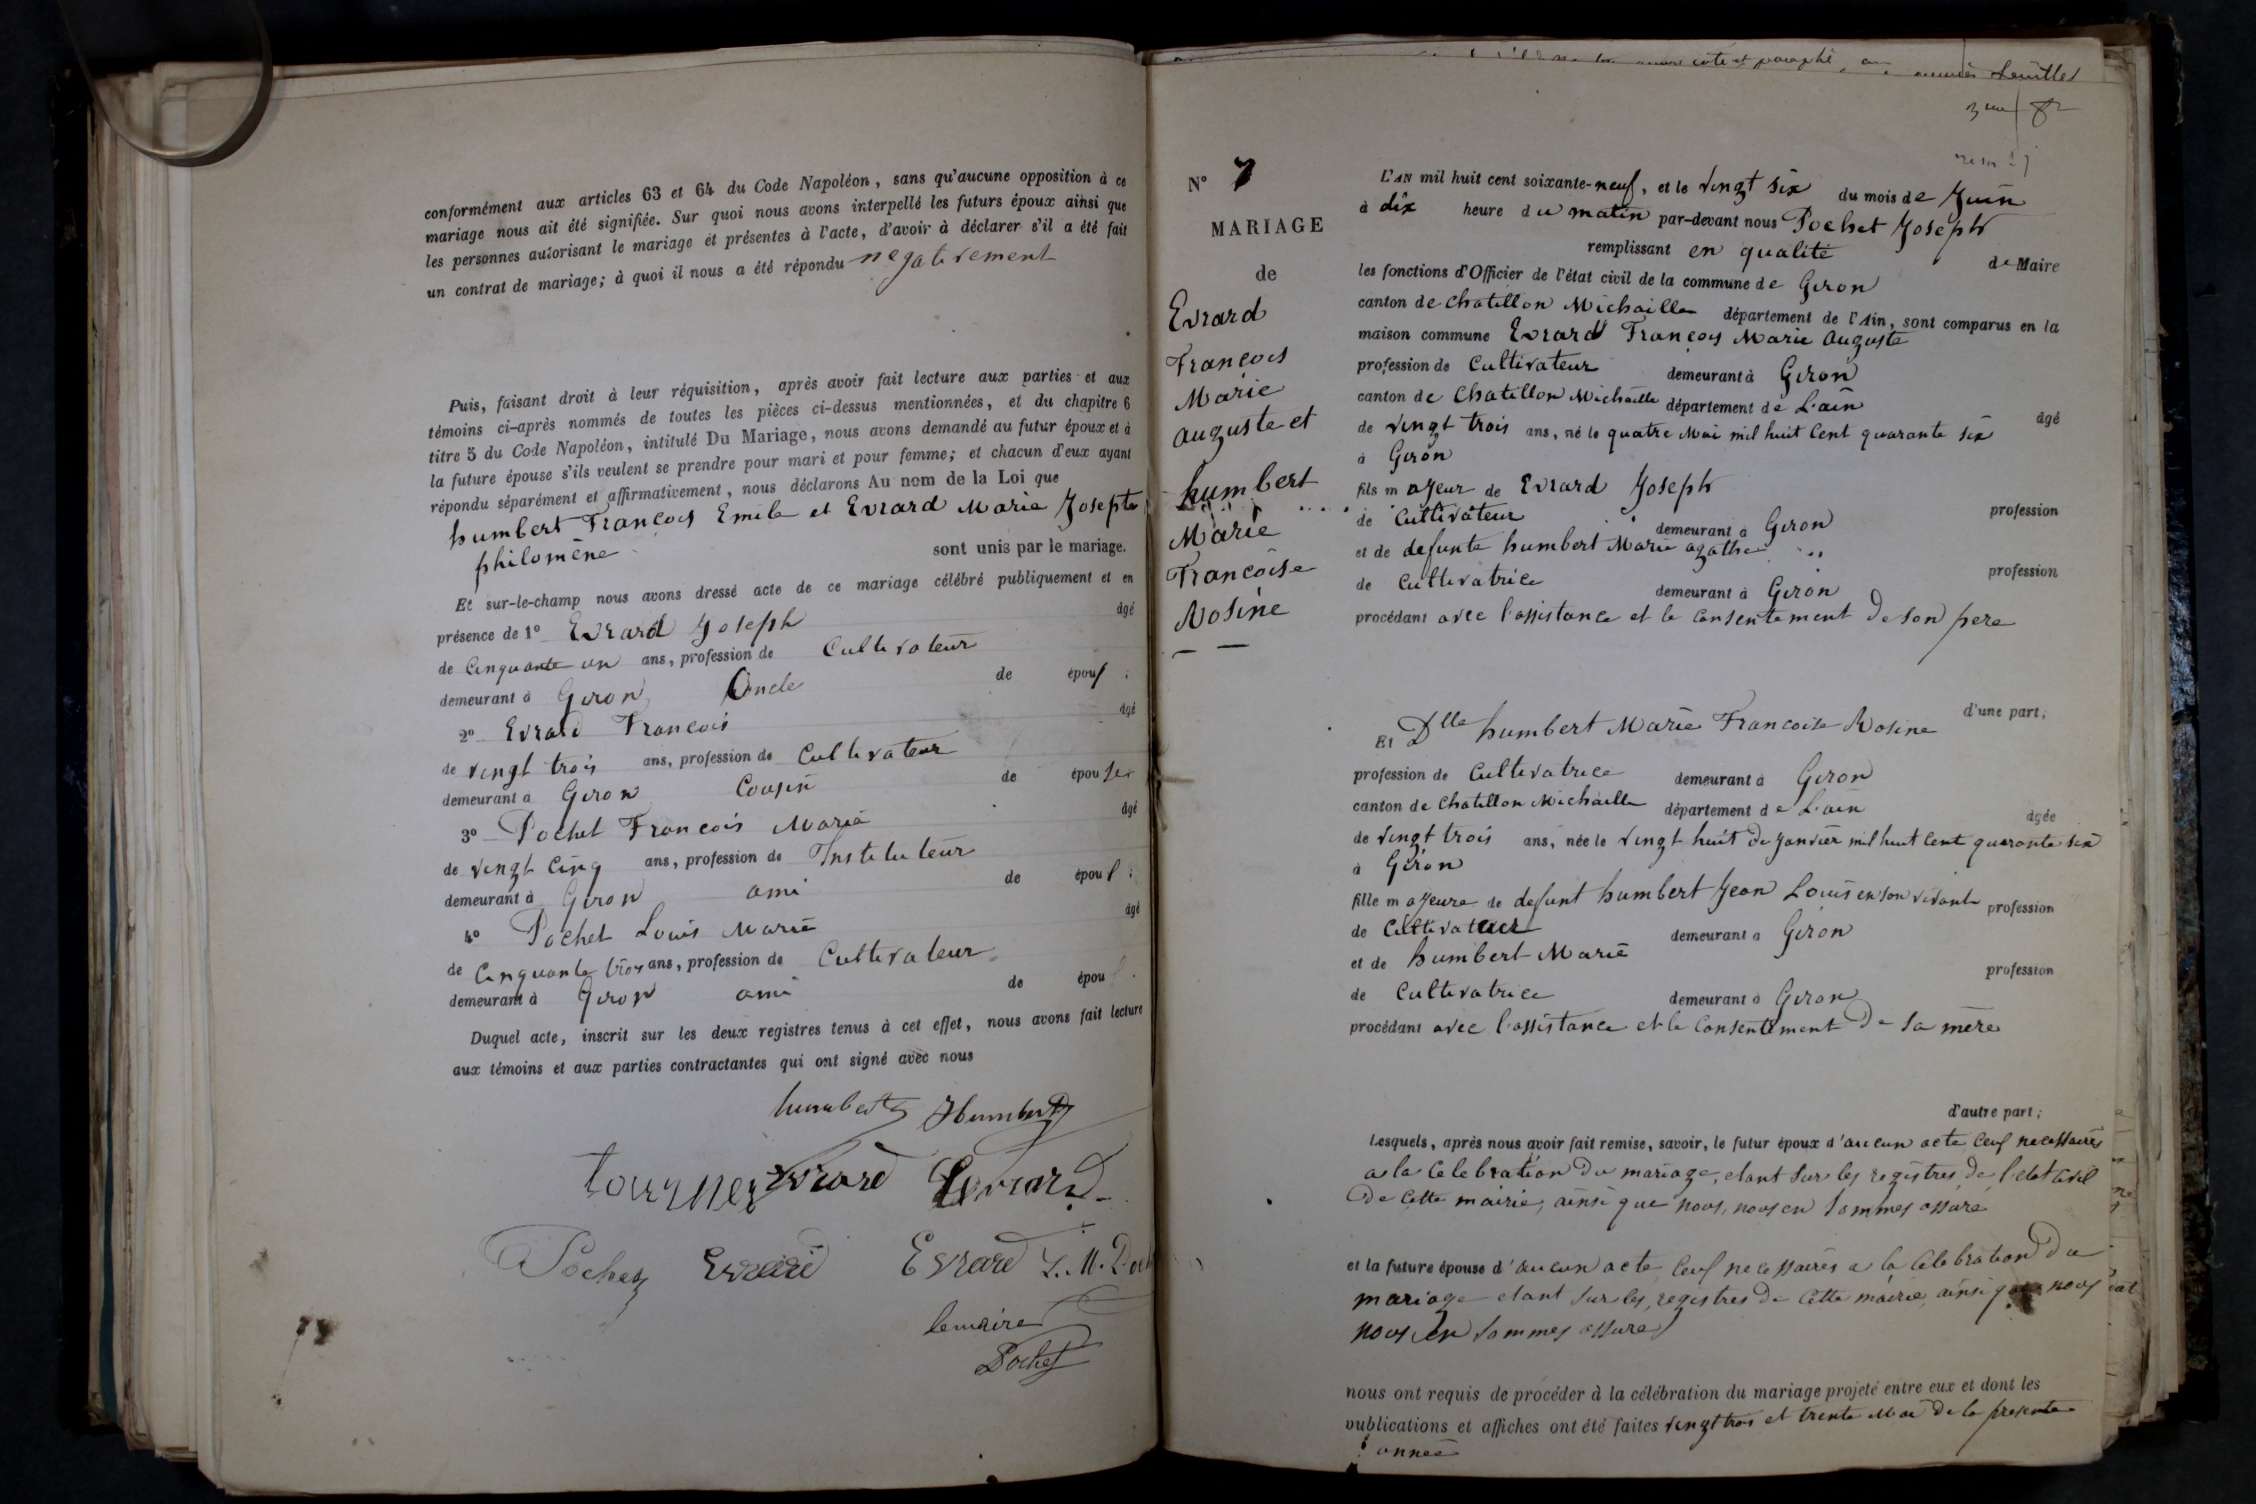 conformément aux articles 63 et 64 du Code Napoléon, sans qu'aucune opposition à ce
mariage nous ait été signifiée. Sur quoi nous avons interpellé les futurs époux ainsi que
les personnes autorisant le mariage et présentes à l'acte, d'avoir à déclarer s'il a été fait
un contrat de mariage; à quoi il nous a été répondu negativement
Puis, faisant droit à leur réquisition, après avoir fait lecture aux parties et aux
témoins ci-après nommés de toutes les pièces ci-dessus mentionnées, et du chapitre 6
titre 5 du Code Napoléon, intitulé Du Mariage, nous avons demandé au futur époux et à
la future épouse s'ils veulent se prendre pour mari et pour femme; et chacun d'eux ayant
répondu séparément et affirmativement, nous déclarons Au nom de la Loi que
humbert François Emile et Evrard Marie Josephte
philomène
sont unis par le mariage.
Et sur-le-champ nous avons dressé acte de ce mariage célébré publiquement et en
présence de 1° Evrard Joseph âgé
de Cinquante un ans, profession de Cultivateur
demeurant à Giron Oncle de épouse
2° Evrard François âgé
de vingt trois ans, profession de Cultivateur
demeurant à Giron Cousin de épouse
3° Pochet François Marie âgé
de vingt cinq ans, profession de Instituteur
demeurant à Giron ami de épou
4° Pochet Louis Marie âgé
de Cinquante trois ans, profession de Cultivateur
demeurant à Giron ami de épou
Duquel acte, inscrit sur les deux registres tenus à cet effet, nous avons fait lecture
aux témoins et aux parties contractantes qui ont signé avec nous
humbert Humbert
tournier Evrard Evrard
Pochet Evrard Evrard L. M. Poch
le maire
Pochet
coté et paraphé feuillet
N° 7
MARIAGE
de
Evrard
François
Marie
auguste et
humbert
Marie
Françoise
Rosine
L'AN mil huit cent soixante-neuf, et le vingt six du mois de Juin
à dix heure du matin par-devant nous Pochet Joseph
remplissant en qualité de Maire
les fonctions d'Officier de l'état civil de la commune de Giron
canton de Chatillon Michaille département de l'Ain, sont comparus en la
maison commune Evrard François Marie Auguste
profession de Cultivateur demeurant à Giron
canton de Chatillon Michaille département de L'ain âgé
de vingt trois ans, né le quatre Mai mil huit Cent quarante six
à Giron
fils majeur de Evrard Joseph
de Cultivateur demeurant à Giron profession
et de defunte humbert Marie agathe
de Cultivatrice demeurant à Giron profession
procédant avec l'assistance et le consentement de son pere
d'une part;
Et Dlle humbert Marie Francoise Rosine
profession de Cultivatrice demeurant à Giron
canton de Chatillon Michaille département de L'ain âgée
de vingt trois ans, née le vingt huit de janvier mil huit Cent quarante six
à Giron
fille majeure de defunt humbert Jean Louis en son vivant profession
de Cultivateur demeurant à Giron
et de humbert Marie profession
de Cultivatrice demeurant à Giron
procédant avec l'assistance et le Consentement de sa mère
d'autre part;
Lesquels, après nous avoir fait remise, savoir, le futur époux d'aucun acte Ceux necessaires
a la Celebration du mariage, etant sur les registres de l'etat civil
de cette mairie, ainsi que nous, nous en sommes assuré
et la future épouse d'aucun acte Ceux necessaires a la Celebration du
mariage etant sur les registres de Cette mairie, ainsi que nous
nous en sommes assuré
nous ont requis de procéder à la célébration du mariage projeté entre eux et dont les
publications et affiches ont été faites vingt trois et trente Mai de la presente
année